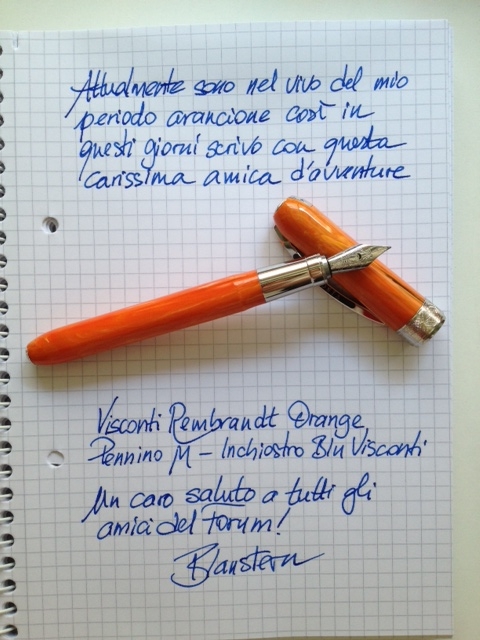 Attualmente sono nel vivo del mio
periodo arancione così in
questi giorni scrivo con questa
carissima amica d'avventure
Visconti Rembrandt Orange
Pennino M – Inchiostro Blu Visconti
Un caro saluto a tutti gli
amici del forum!
Blaustern